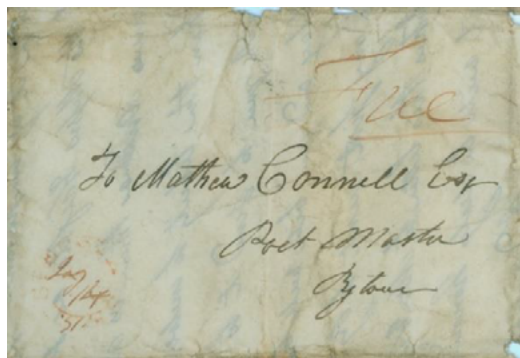 Free
To Mathew Connell Esqr
Post Master
Bytown